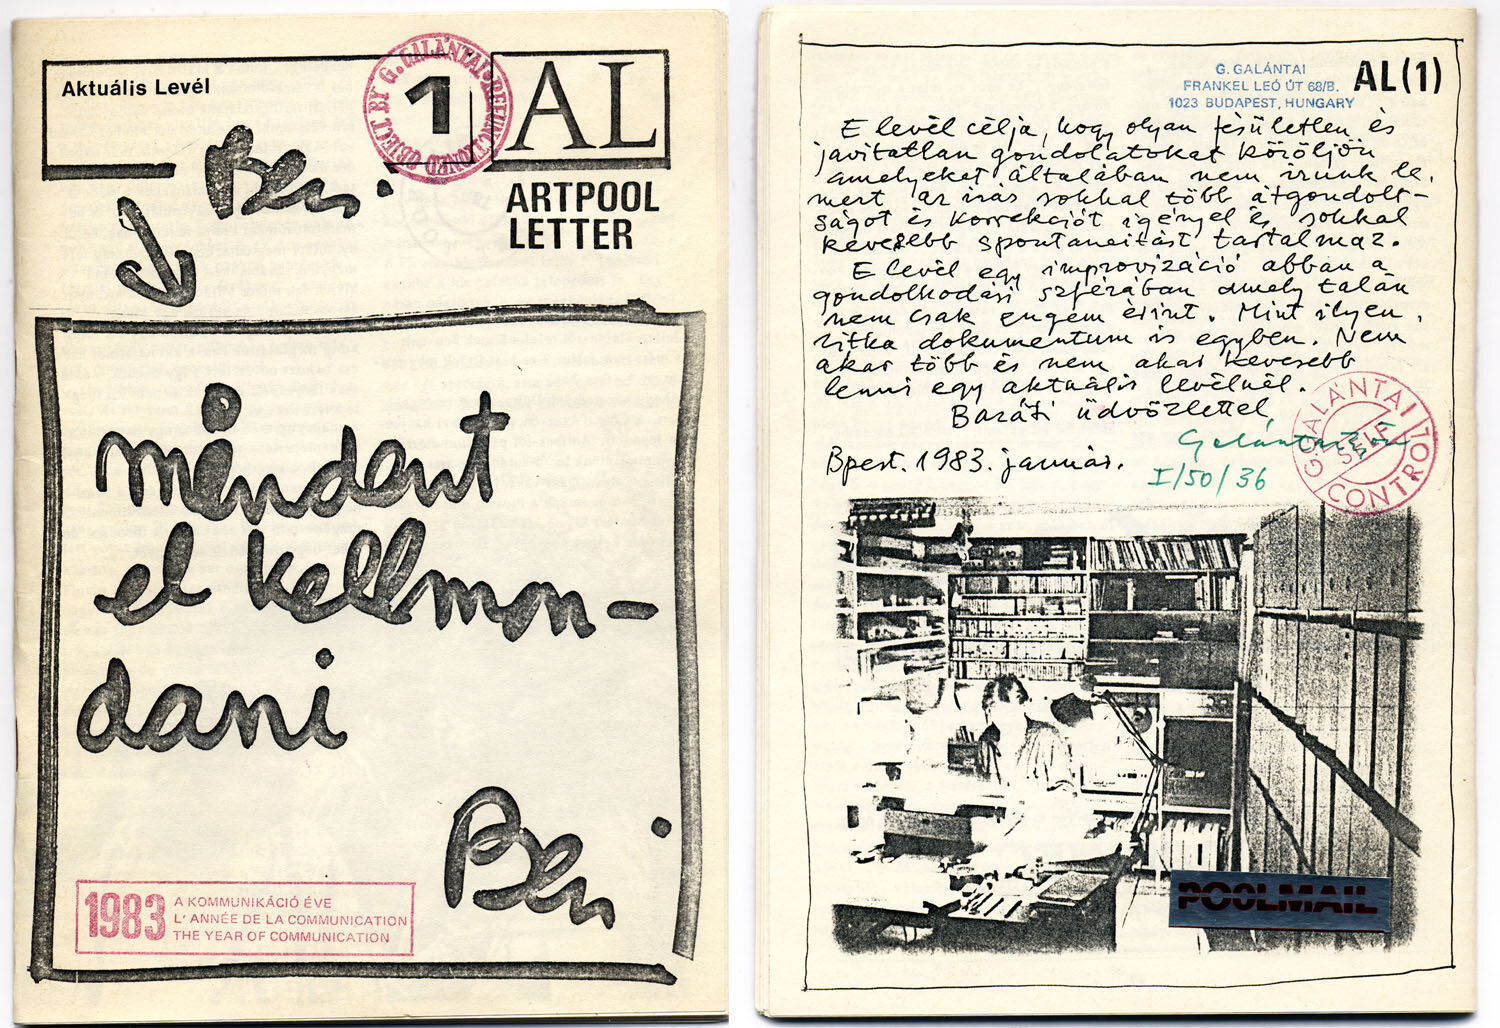 Aktuális Levél
REFUNCTIONED OBJECT BY G. GALÁNTAI
1
AL
ARTPOOL
LETTER
Ben.
mindent
el kellmon-
dani
Ben
1983
A KOMMUNIKÁCIÓ ÉVE
L' ANNÉE DE LA COMMUNICATION
THE YEAR OF COMMUNICATION
G. GALÁNTAI
FRANKEL LEÓ ÚT 68/B.
1023 BUDAPEST, HUNGARY
AL(1)
E levél célja, hogy olyan fésületlen és
javitatlan gondolatokat közöljön
amelyeket általában nem irunk le,
mert az irás sokkal több átgondolt-
ságot és korrekciót igényel és sokkal
kevesebb spontaneitást tartalmaz.
E levél egy improvizáció abban a
gondolkodási szférában amely talán
nem csak engem érint. Mint ilyen,
ritka dokumentum is egyben. Nem
akar több és nem akar kevesebb
lenni egy aktuális levélnél.
Baráti üdvözlettel
Galántai
Bpest. 1983. január.
I/50/36
G. GALÁNTAI
SELF
CONTROL
POOLMAIL